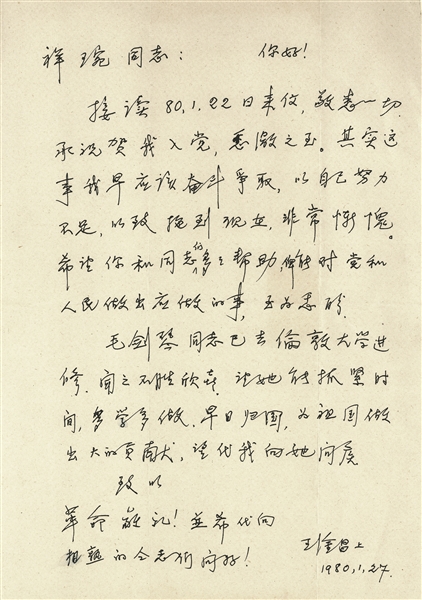 祥琬同志： 你好！
接读80.1.22日来信，敬悉一切
承祝贺我入党，感激之至。其实这
事我早应该奋斗争取，以自己努力
不足，以致拖到现在，非常惭愧。
希望你和同志们多多帮助，能对党和
人民做出应做的事，至为感盼
毛剑琴同志已去倫敦大学进
修，闻之不胜欣喜，让她能抓紧时
间，多学多做，早日归国，为祖国做
出大的贡献，望代我向她问候
致以
革命敬礼！并希代向
相熟的同志们问好！
王淦昌上
1980.1.27.